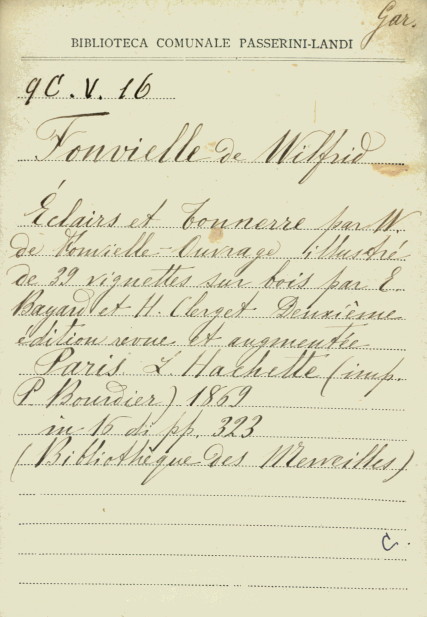 Gar.
BIBLIOTECA COMUNALE PASSERINI-LANDI
9C. V. 16
Fonvielle de Wilfrid
Éclairs et tonnerre par W.
de Fonvielle - Ouvrage illustré
de 39 vignettes sur bois par E.
Bayard et H. Clerget Deuxième
édition revue et augmentée
Paris L. Hachette (imp.
P. Bourdier) 1869
in 16 di pp. 323
(Bibliothèque des Merveilles)
C.